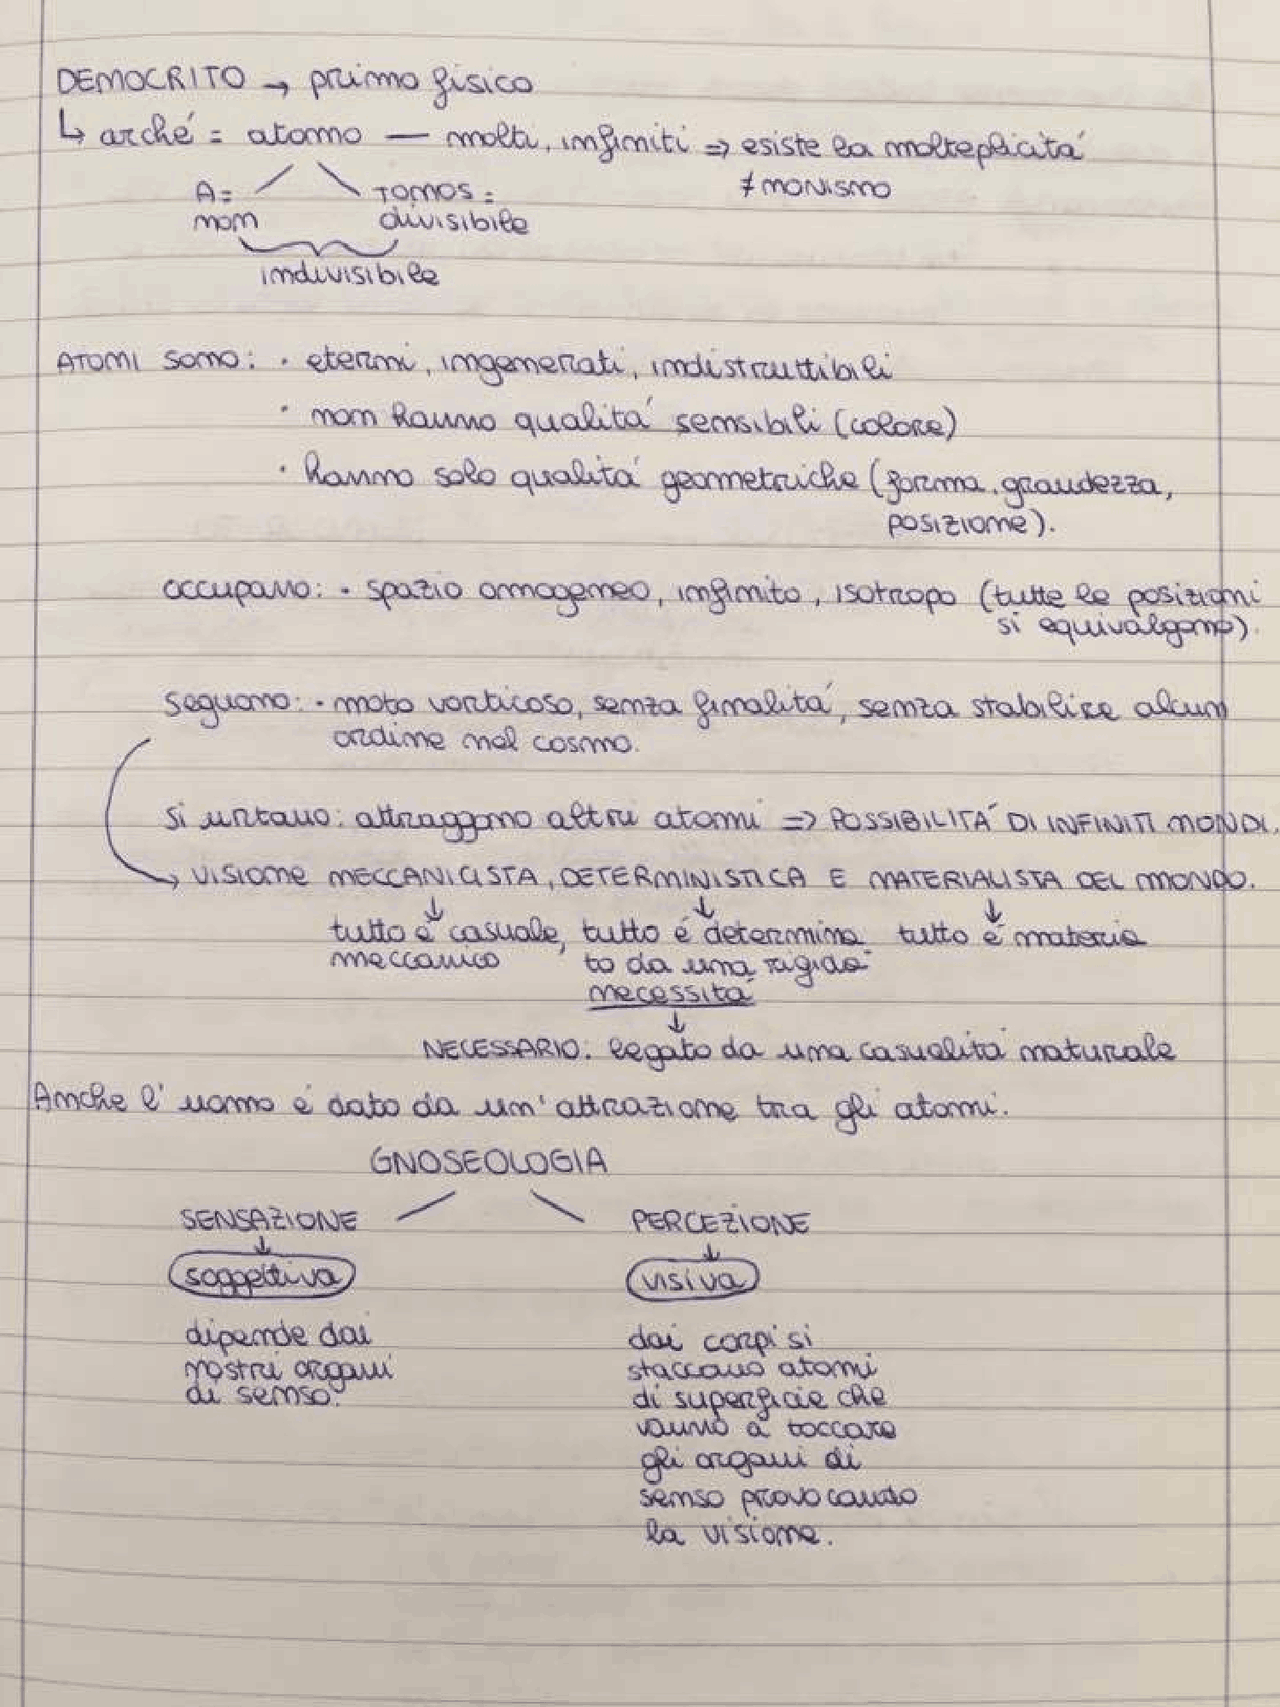 DEMOCRITO → primo fisico
↳ arché = atomo — molti, infiniti => esiste la molteplicità
≠ MONISMO
A = non
TOMOS = divisibile
indivisibile
ATOMI sono: • eterni, ingenerati, indistruttibili
• non hanno qualità sensibili (colore)
• hanno solo qualità geometriche (forma, grandezza,
posizione).
occupano: • spazio omogeneo, infinito, isotropo (tutte le posizioni
si equivalgono).
seguono: • moto vorticoso, senza finalità, senza stabilire alcun
ordine nel cosmo.
si urtano: attraggono altri atomi => POSSIBILITÀ DI INFINITI MONDI.
→ VISIONE MECCANICISTA, DETERMINISTICA E MATERIALISTA DEL MONDO.
↓ ↓ ↓
tutto è casuale, meccanico
tutto è determina-
to da una rigida
necessità
tutto è materia
↓
NECESSARIO: legato da una casualità naturale
Anche l'uomo è dato da un'attrazione tra gli atomi.
GNOSEOLOGIA
SENSAZIONE
↓
soggettiva
dipende dai
nostri organi
di senso.
PERCEZIONE
↓
visiva
dai corpi si
staccano atomi
di superficie che
vanno a toccare
gli organi di
senso provocando
la visione.